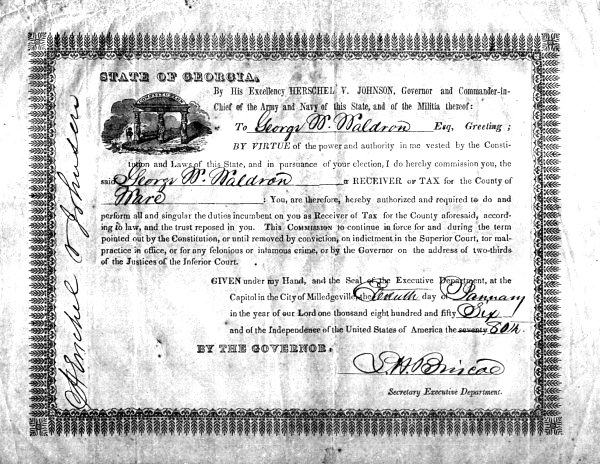 STATE OF GEORGIA.
By His Excellency HERSCHEL V. JOHNSON, Governor and Commander-in-
Chief of the Army and Navy of this State, and of the Militia thereof:
To George W. Waldron Esq, Greeting;
BY VIRTUE of the power and authority in me vested by the Consti-
tution and Laws of this State, and in pursuance of your election, I do hereby commission you, the
said George W. Waldron a RECEIVER OF TAX for the County of
Ware : You are, therefore, hereby authorized and required to do and
perform all and singular the duties incumbent on you as Receiver of Tax for the County aforesaid, accord-
ing to law, and the trust reposed in you. THIS COMMISSION to continue in force for and during the term
pointed out by the Constitution, or until removed by conviction, on indictment in the Superior Court, for mal-
practice in office, or for any felonious or infamous crime, or by the Governor on the address of two-thirds
of the Justices of the Inferior Court.
GIVEN under my Hand, and the Seal of the Executive Department, at
the Capitol in the City of Milledgeville, the Tenth day of January
in the year of our Lord one thousand eight hundred and fifty Six
and of the Independence of the United States of America the seventy 80th.
BY THE GOVERNOR,
Briscoe
Secretary Executive Department.
Herschel V Johnson